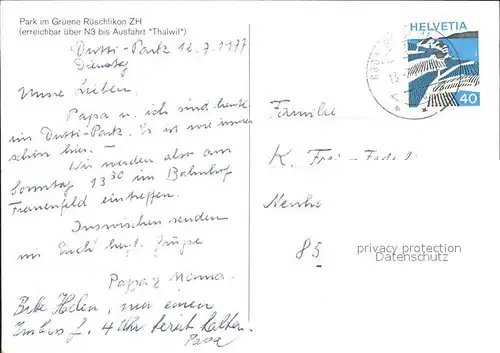 Park im Gruene Rüschlikon ZH
(erreichbar über N3 bis Ausfahrt "Thalwil")
Dutti-Park 12.7.1977
Dienstag
Unsre Lieben,
Papa u. ich sind heute
im Dutti-Park. Es ist wie immer
schön hier.
Wir werden also am
Sonntag 13 30 im Bahnhof
Frauenfeld eintreffen.
Inzwischen senden
wir Euch herzl. Grüsse
Papa & Mama.
Bitte Helen, nur einen
Imbiss f. 4 Uhr bereit halten.
Papa
HELVETIA
40
Familie
K. Frei
85
privacy protection
Datenschutz